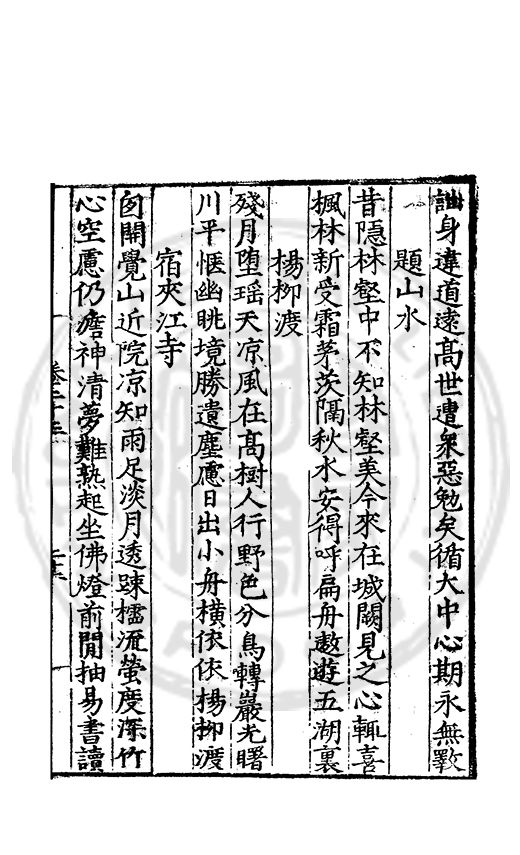 詘身違道遠高世遭衆惡勉矣循大中心期永無斁
題山水
昔隱林壑中不知林壑美今來在城闕見之心輒喜
楓林新受霜茅茨隔秋水安得呼扁舟遨遊五湖裏
楊柳渡
殘月墮瑶天凉風在高樹人行野色分鳥轉巖光曙
川平愜幽眺境勝遺塵慮日出小舟横依依楊柳渡
宿夾江寺
囱開覺山近院凉知雨足淡月透踈櫺流螢度深竹
心空慮仍澹神清夢難熟起坐佛燈前閒抽易書讀